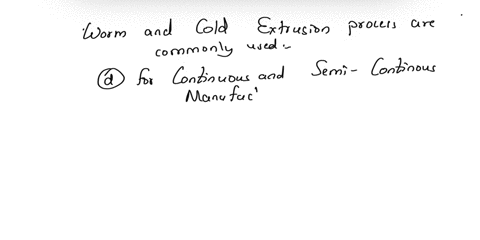 Worm and Cold Extrusion process are
commonly used :-
(d) for Continuous and Semi - Continous
Manufac'